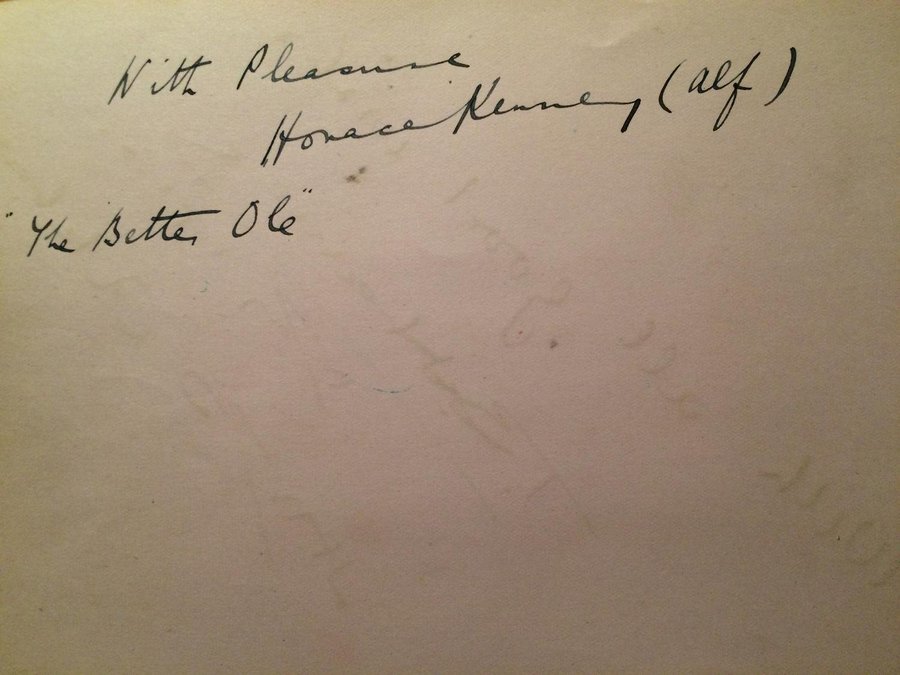 With Pleasure
Horace Kenney (Alf)
"The Better Ole"